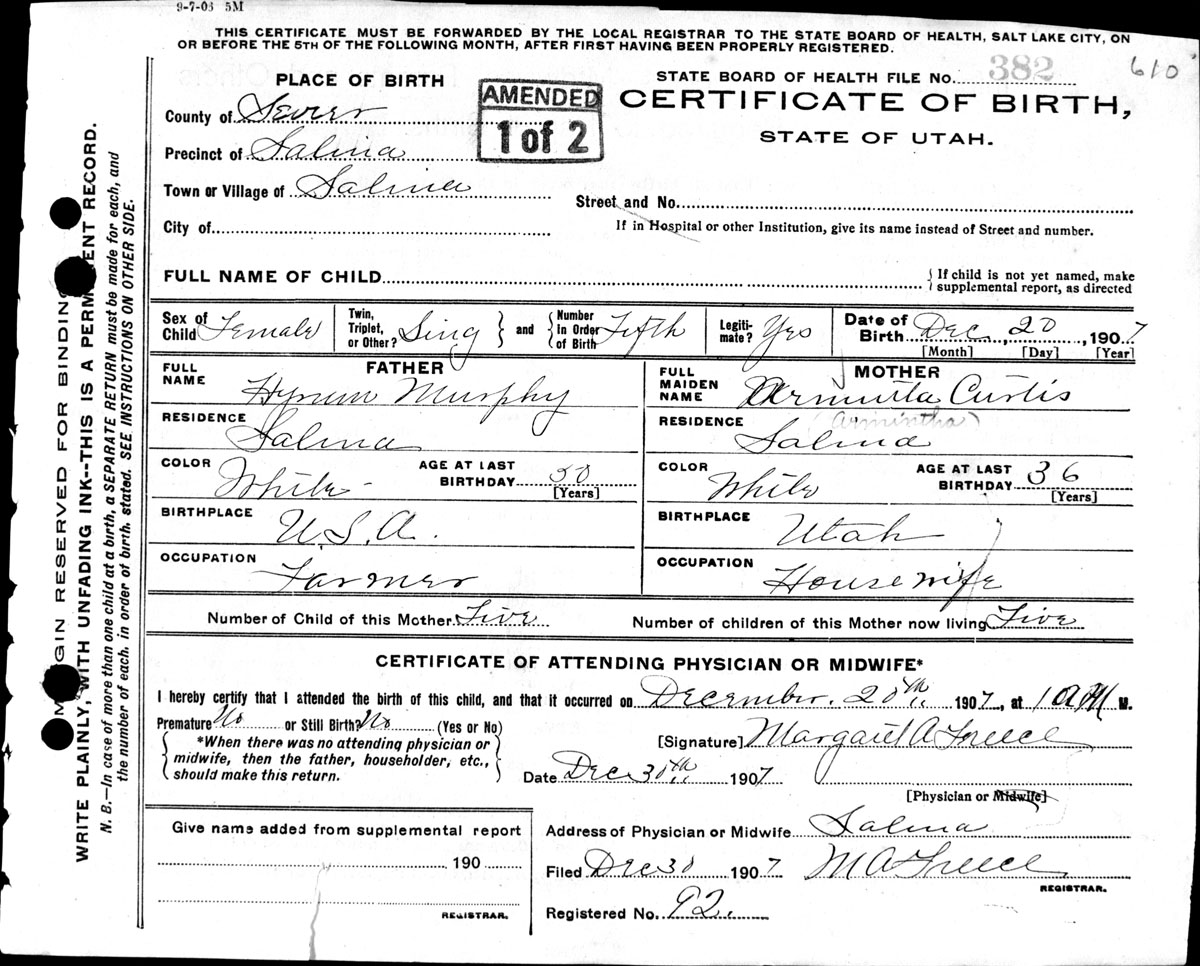 9-7-06 5M
THIS CERTIFICATE MUST BE FORWARDED BY THE LOCAL REGISTRAR TO THE STATE BOARD OF HEALTH, SALT LAKE CITY, ON
OR BEFORE THE 5TH OF THE FOLLOWING MONTH, AFTER FIRST HAVING BEEN PROPERLY REGISTERED.
PLACE OF BIRTH
County of Sevier
Precinct of Salina
Town or Village of Salina
City of
AMENDED
1 of 2
STATE BOARD OF HEALTH FILE No. 382
610
CERTIFICATE OF BIRTH,
STATE OF UTAH.
Street and No.
If in Hospital or other Institution, give its name instead of Street and number.
FULL NAME OF CHILD
If child is not yet named, make
supplemental report, as directed
Sex of Child Female
Twin, Triplet, or Other? Sing
and
Number In Order of Birth Fifth
Legitimate? Yes
Date of Birth Dec. 20, 1907
[Month] [Day] [Year]
FATHER
FULL NAME Hyrum Murphy
RESIDENCE Salina
COLOR White
AGE AT LAST BIRTHDAY 50
[Years]
BIRTHPLACE U.S.A.
OCCUPATION Farmer
MOTHER
FULL MAIDEN NAME Armitta Curtis
(Armintha)
RESIDENCE Salina
COLOR White
AGE AT LAST BIRTHDAY 36
[Years]
BIRTHPLACE Utah
OCCUPATION Housewife
Number of Child of this Mother Five
Number of children of this Mother now living Five
CERTIFICATE OF ATTENDING PHYSICIAN OR MIDWIFE*
I hereby certify that I attended the birth of this child, and that it occurred on December. 20th, 1907, at 1 AM M.
Premature No or Still Birth? No (Yes or No)
*When there was no attending physician or
midwife, then the father, householder, etc.,
should make this return.
[Signature] Margaret A Freece
Date Dec 30th 1907
[Physician or Midwife]
Give name added from supplemental report
190
REGISTRAR.
Address of Physician or Midwife Salina
Filed Dec 30 1907 M A Freece
REGISTRAR.
Registered No. 92.
MARGIN RESERVED FOR BINDING
WRITE PLAINLY, WITH UNFADING INK--THIS IS A PERMANENT RECORD.
N. B.—In case of more than one child at a birth, a SEPARATE RETURN must be made for each, and
the number of each, in order of birth, stated. SEE INSTRUCTIONS ON OTHER SIDE.